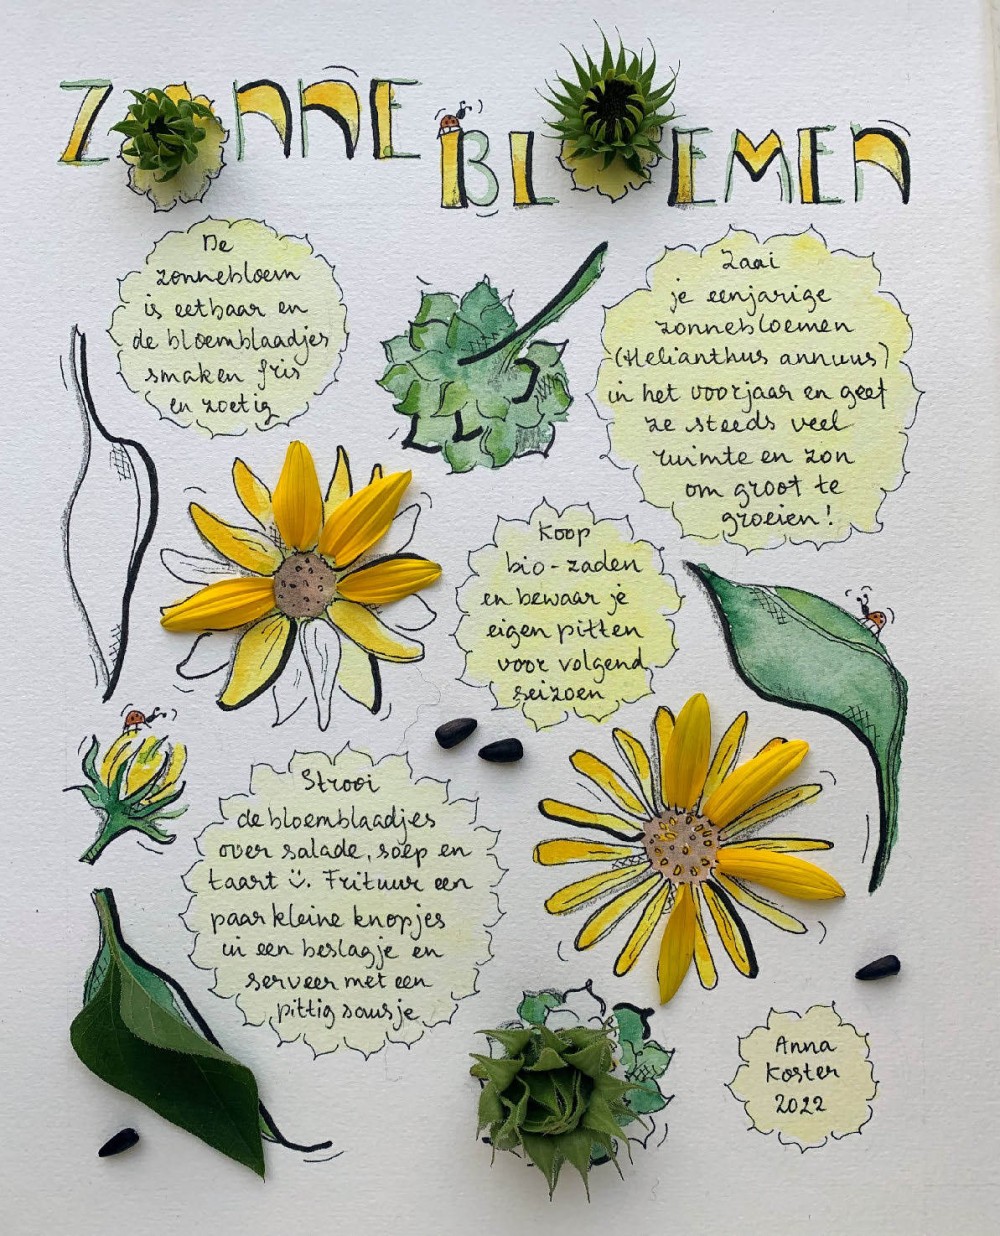 ZONNE
BLOEMEN
De
zonnebloem
is eetbaar en
de bloemblaadjes
smaken fris
en zoetig
Zaai
je eenjarige
zonnebloemen
(Helianthus annuus)
in het voorjaar en geef
ze steeds veel
ruimte en zon
om groot te
groeien!
Koop
bio-zaden
en bewaar je
eigen pitten
voor volgend
seizoen
Strooi
de bloemblaadjes
over salade, soep en
taart ☺. Frituur een
paar kleine knopjes
in een beslagje en
serveer met een
pittig sausje
Anna
Koster
2022